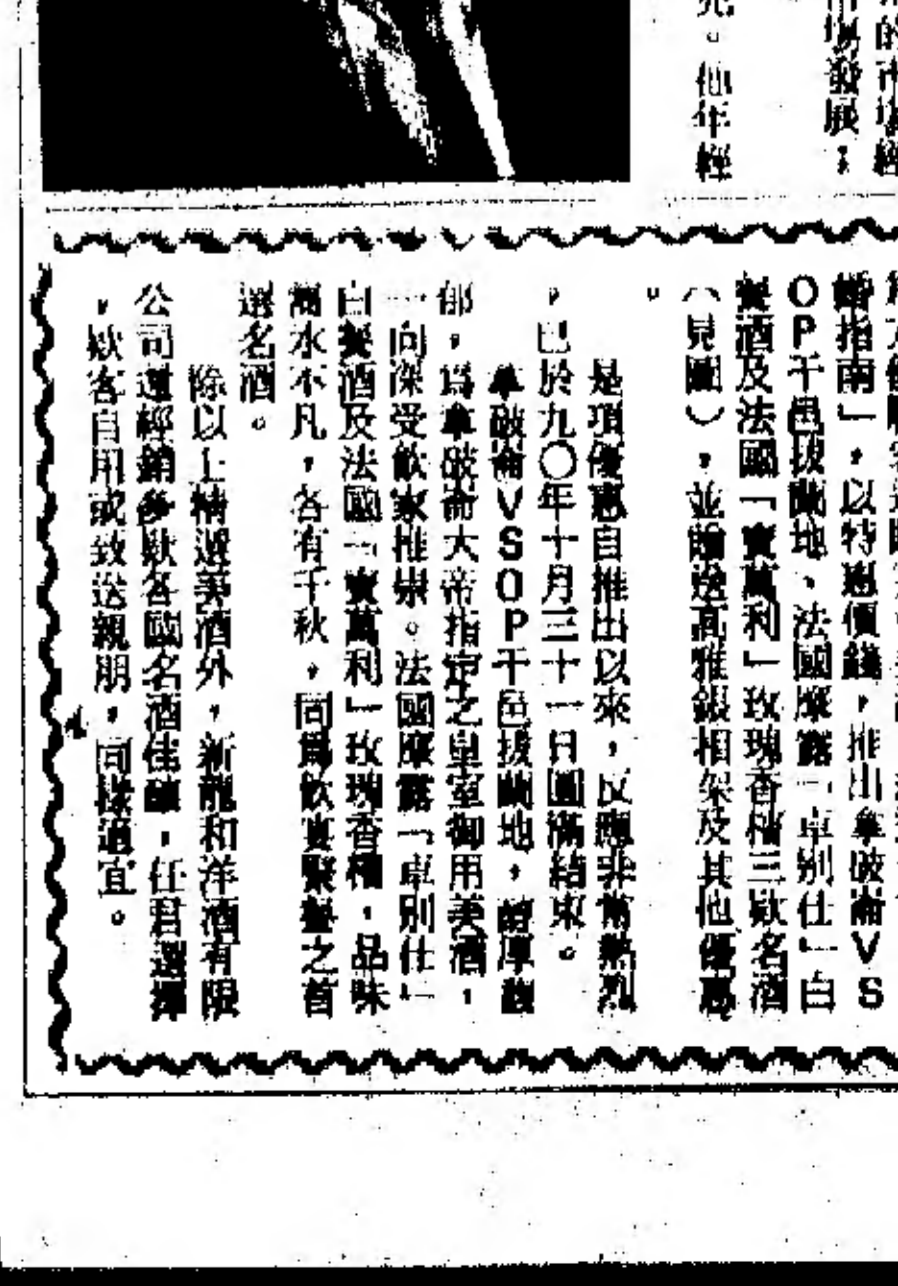 的市場經
市場發展，
。他年輕
婚指南」，以特惠價錢，推出拿破崙VS
OP干邑拔蘭地、法國摩露「卓別仕」白
餐酒及法國「寶萬利」玫瑰香檳三欵名酒
（見圖），並贈送高雅銀相架及其他優惠
。
是項優惠自推出以來，反應非常熱烈
，已於九〇年十月三十一日圓滿結束。
拿破崙VSOP干邑拔蘭地，醇厚馥
郁，爲拿破崙大帝指定之皇室御用美酒，
一向深受飲家推崇。法國摩露「卓別仕」
白餐酒及法國「寶萬利」玫瑰香檳，品味
高水不凡，各有千秋，同爲飲宴聚餐之首
選名酒。
除以上精選美酒外，新龍和洋酒有限
公司還經銷多欵各國名酒佳釀，任君選擇
，欵客自用或致送親朋，同樣適宜。